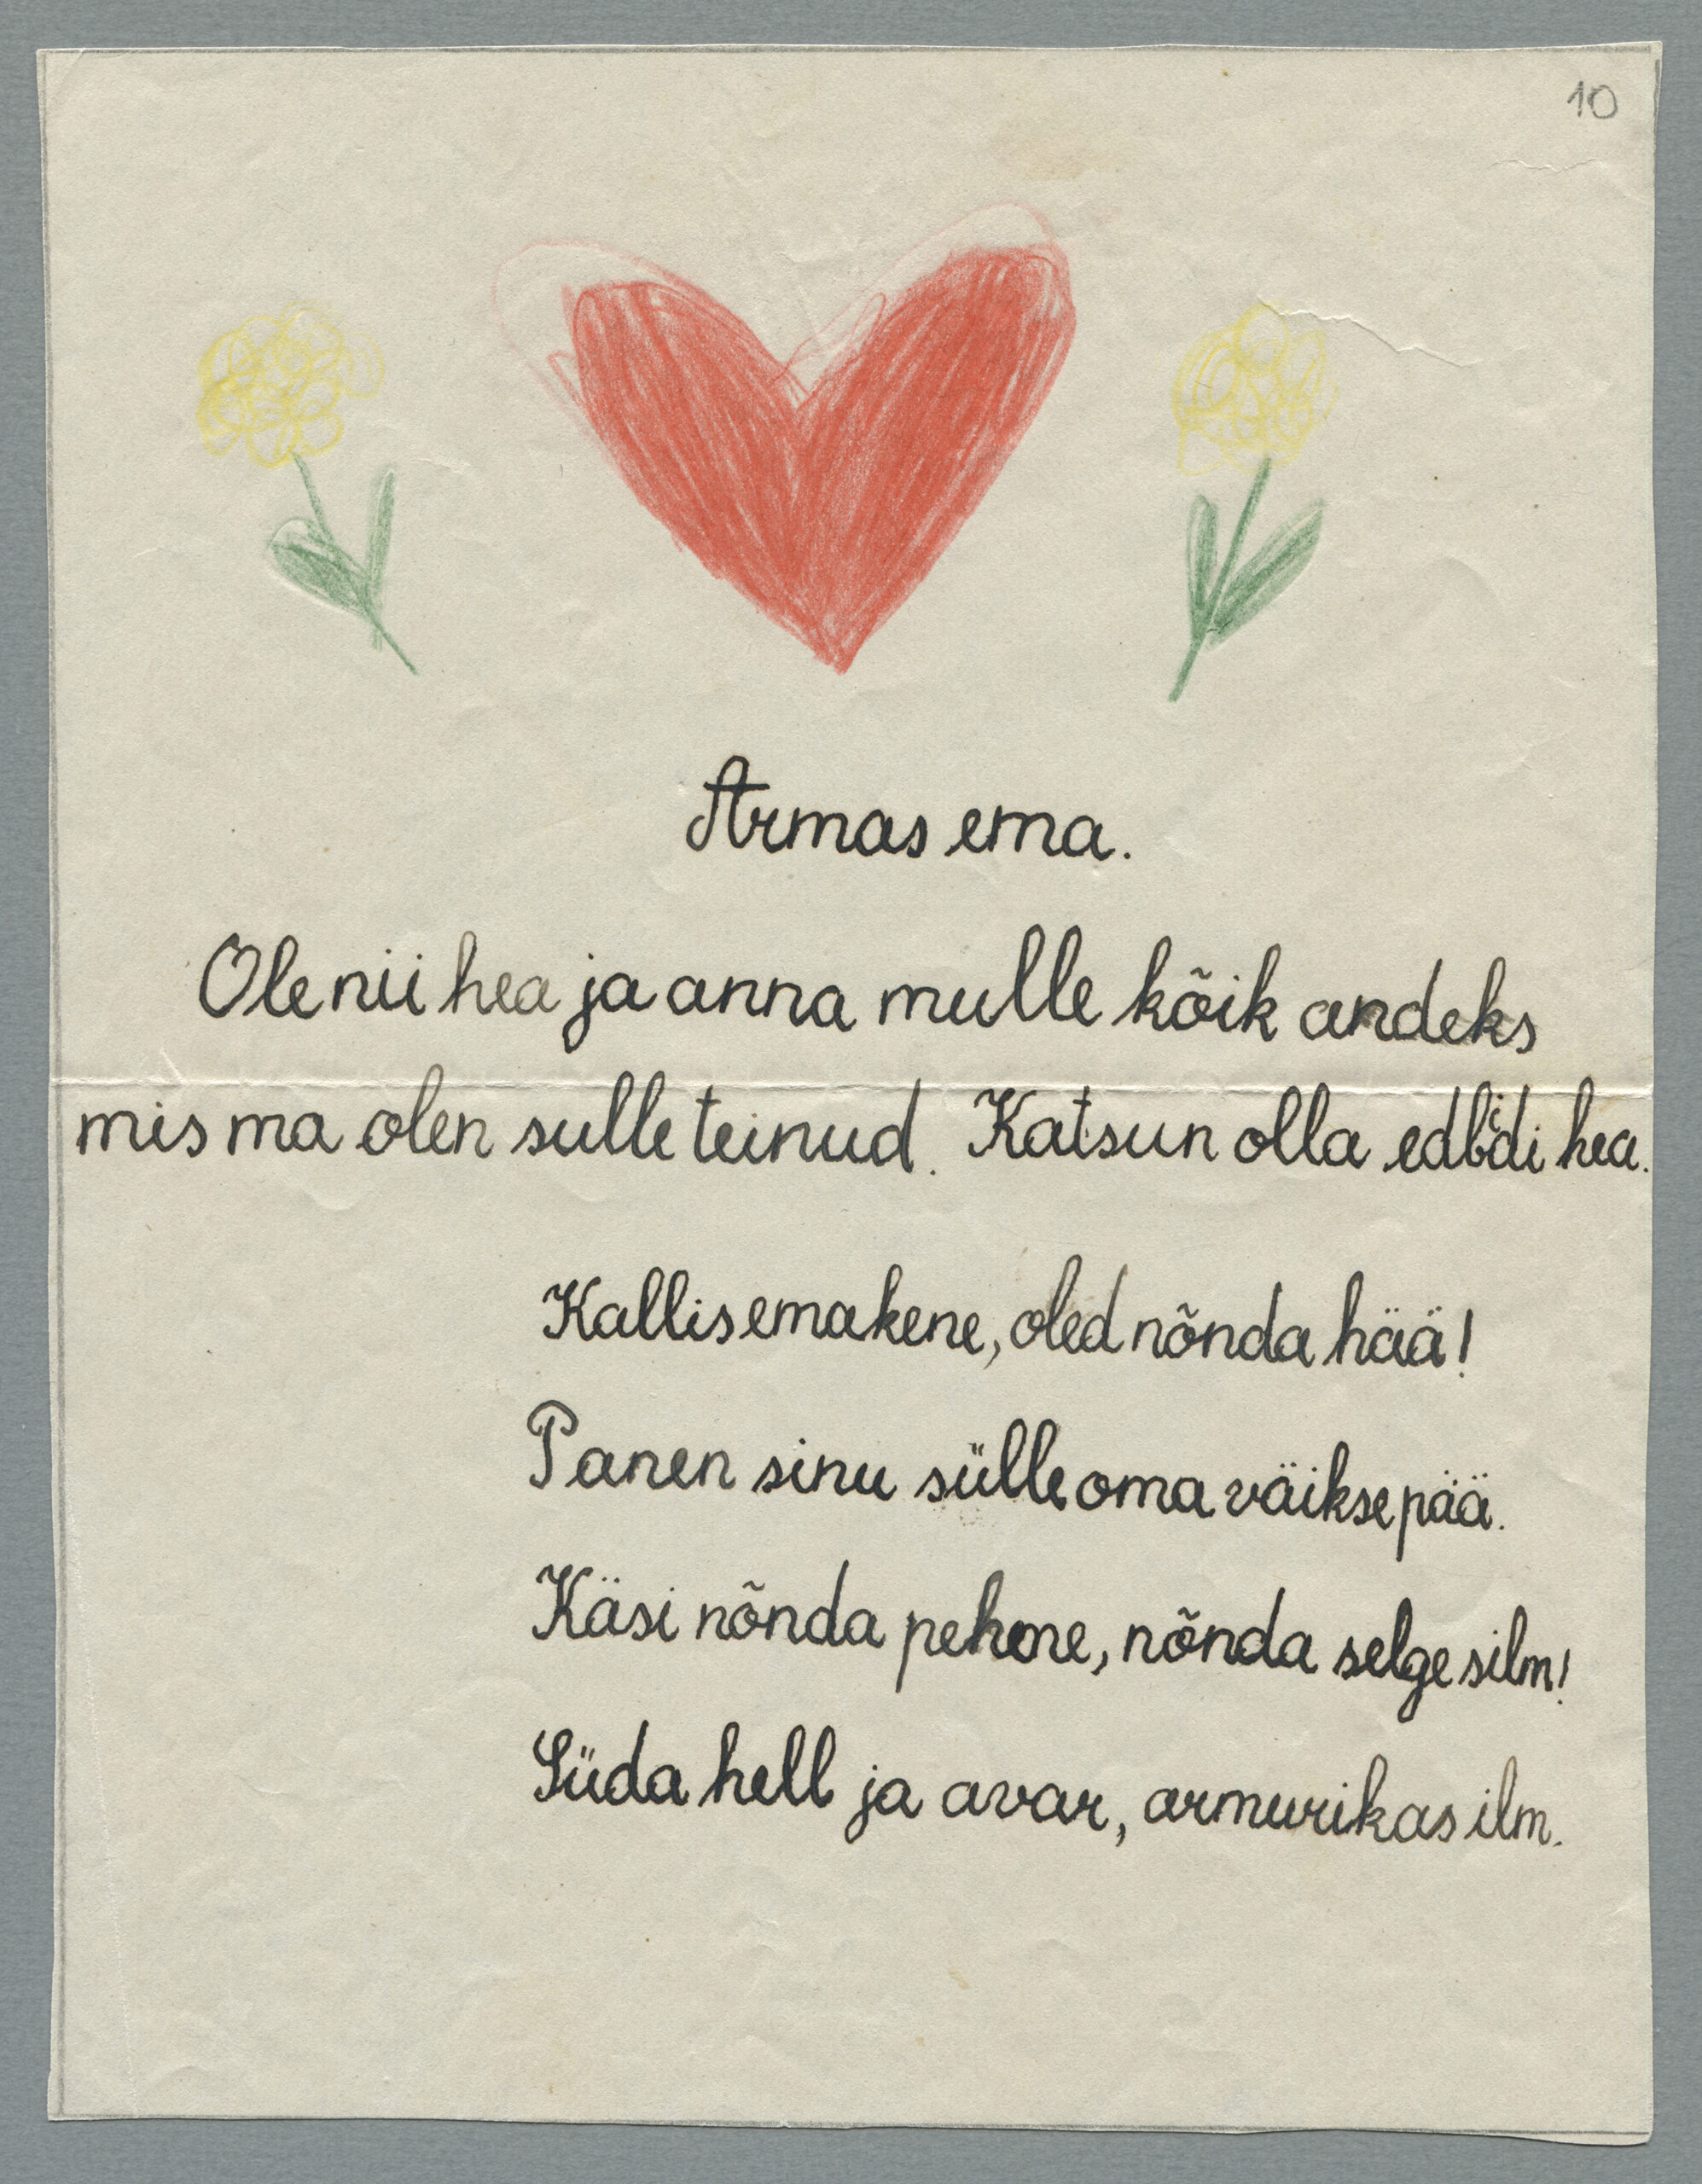 10
Armas ema.
Ole nii hea ja anna mulle kõik andeks
mis ma olen sulle teinud. Katsun olla edbidi hea.
Kallis emakene, oled nõnda hää!
Panen sinu sülle oma väikse pää.
Käsi nõnda pehme, nõnda selge silm!
Süda hell ja avar, armurikas ilm.